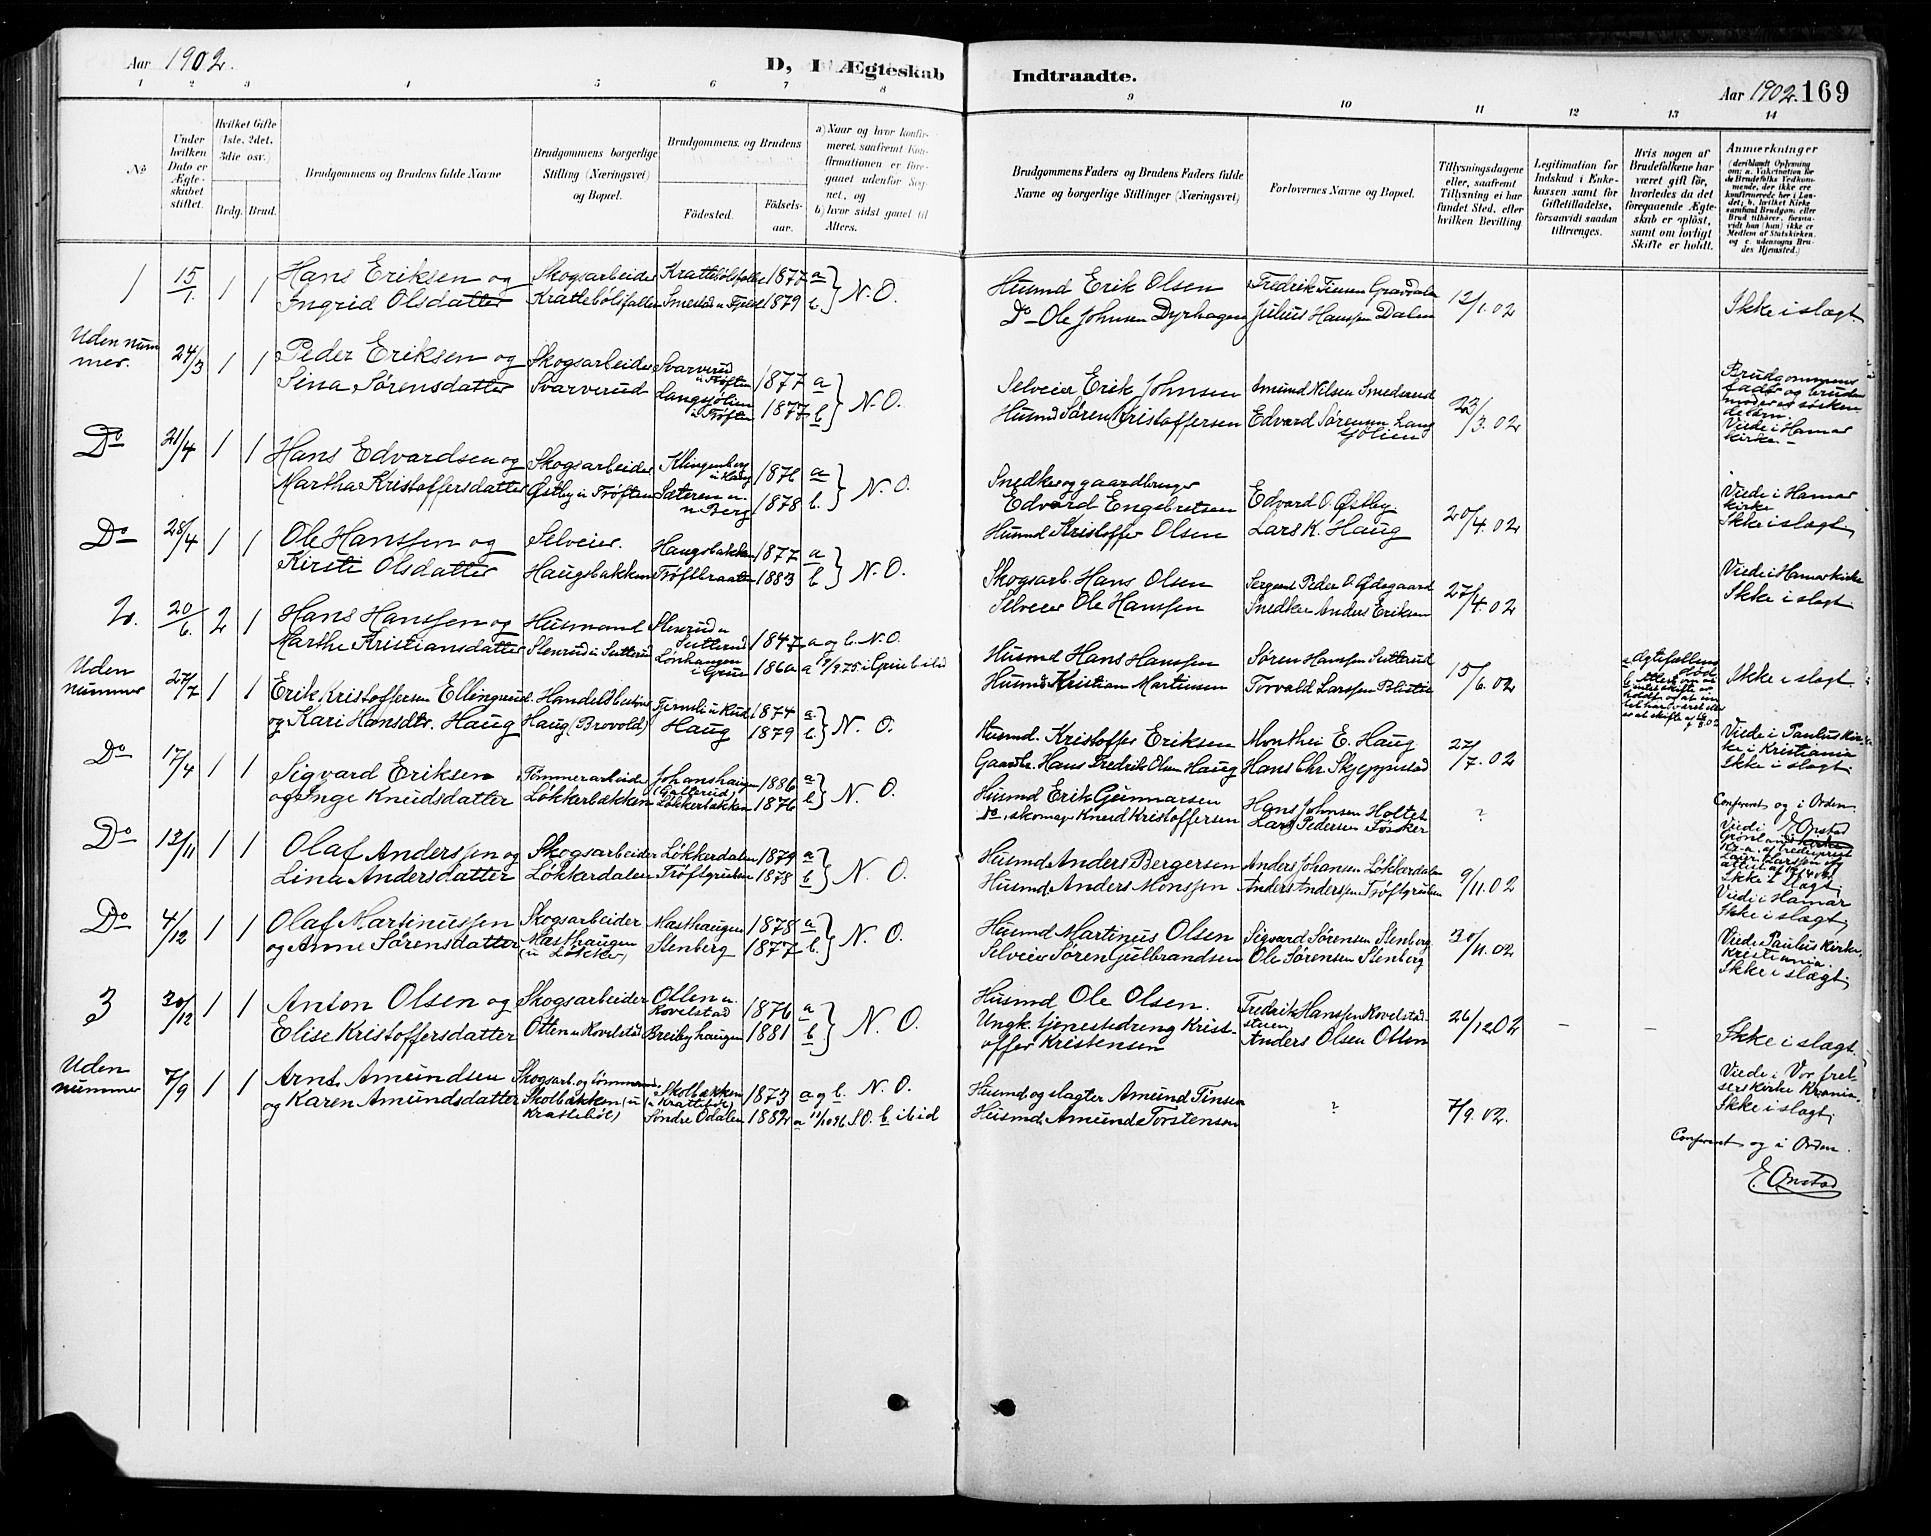 Aar 1902.
D, I Ægteskab
Indtraadte.
Aar 1902. 169
1 2 3 4 5 6 7 8 9 10 11 12 13 14
No
Under hvilken Dato er Ægteskabet stiftet.
Hvilket Gifte (1ste, 2det, 3die osv.)
Brdg. Brud.
Brudgommens og Brudens fulde Navne
Brudgommens borgerlige Stilling (Næringsvei) og Bopæl.
Brudgommens og Brudens
Födested.
Födselsaar.
a) Naar og hvor konfirmeret, saafremt Konfirmationen er foregaaet udenfor Sognet, og
b) hvor sidst gaaet til Alters.
Brudgommens Faders og Brudens Faders fulde Navne og borgerlige Stillinger (Næringsvei)
Forlovernes Navne og Bopæl.
Tillysningsdagene eller, saafremt Tillysning ei har fundet Sted, efter hvilken Bevilling
Legitimation for Indskud i Enkekassen samt for Giftetilladelse, forsaavidt saadan tiltrænges.
Hvis nogen af Brudefolkene har været gift för, hvorledes da det foregaaende Ægteskab er oplöst, samt om lovligt Skifte er holdt.
Anmærkninger
1 15/1. 1 1 Hans Eriksen og Skogsarbeider 1877 a
Ingrid Olsdatter 1879 b. N. O.
Husmd Erik Olsen 12/1.02 Ikke i slægt.
Do Ole Johnsen Dyrhagen Julius Hanssen Dalen
Uden nummer. 24/3 1 1 Peder Eriksen og Skogsarbeider Svarverud i Trøften 1877 a
Sina Sørensdatter Svarverud 1877 b N. O.
Selveier Erik Johnsen Amund Nilsen Smederud 23/3.02
Husmd Søren Kristoffersen Edvard Sørensen
Viede i Hamar kirke.
Do 21/4 1 1 Hans Edvardsen og Skogsarbeider 1876 a
Martha Kristoffersdatter Østby i Trøften 1878 b. N. O.
Snedker og gaardbruger
Edvard Engebretsen Edvard O. Østby. 20/4.02
Husmd Kristoffer Olsen Lars K. Haug
Viede i Hamar kirke
Ikke i slægt
Do 28/4 1 1 Ole Hanssen og Selveier. Haugsbakken 1877 a
Kirsti Olsdatter Haugsbakken Trøftbraaten 1883 b. N. O.
Skogsarb. Hans Olsen Sergent Peder O. Ødegaard 27/4.02
Selveier Ole Hanssen Snedker Anders Eriksen
Viede i Hamar kirke
Ikke i slægt
2. 20/6. 2 1 Hans Hanssen og Husmand Stenrud u. Sætterud 1847 a og b. N. O.
Marthe Kristiansdatter 1860
Husmd Hans Hanssen Søren Hanssen Sutterud 15/6.02
Husmd Kristian Martinsen Torvald Larssen
Ikke i slægt
Uden nummer 27/7 1 1 Erik Kristoffersen Ellingrud. 1874 a.
og Kari Hansdtr. Haug Haug (Brovold) Haug 1879 b. N. O.
Husmd. Kristoffer Eriksen E. Haug 27/7.02
Gaardbr. Hans Fredrik Olsen Haug Hans Chr. Skjeppestad
Viede i Paulus kirke i Kristiania
Ikke i slægt.
Do 17/4 1 1 Sigvard Eriksen Tømmerarbeider Johanshaugen 1886 a
og Inge Knudsdatter Løkkerbakken Løkkerbakken 1876 b N. O.
Husmd Erik Gunnarsen Hans Johnsen Holtet ?
Do, skomager Knud Kristoffersen Lars Pedersen
Confereret og i Orden. E. Onstad
Ikke i slægt
Do 12/11 1 1 Olaf Anderssen og Skogsarbeider Løkkerdalen 1879 a
Lina Andersdatter Løkkerdalen Trøftgruben 1878 b N. O.
Husmd Anders Bergersen Anders Johansen Løkkerdalen 9/11.02
Husmd Anders Monssen Anders Andersen Trøftgruben
Viede i Hamar
Ikke i slægt
Do 4/12 1 1 Olaf Martinussen Skogsarbeider Masthaugen 1878 a
og Anne Sørensdatter Masthaugen (u Løkker) Stenberg 1877 b. N. O.
Husmd Martinus Olsen Sigvard Sørensen Stenberg 30/11.02
Selveier Søren Gulbrandsen Ole Sørensen Stenberg
Viede Paulus kirke, Kristiania.
Ikke i slægt
3 30/12 1 1 Anton Olsen og Skogsarbeider Otten u. Rovelstad 1876 a
Elise Kristoffersdatter Otten u Rovelstad Breibyhaugen 1881 b. N. O.
Husmd Ole Olsen. Fredrik Hanssen Rovelstadstuen 26/12.02 – –
Ungk. tjenestedreng Kristoffer Kristensen Anders Olsen Otten
Ikke i slægt.
Uden nummer 7/9 1 1 Arnt Amundsen Skogsarb. og tømmerm. Skolbækken u Krattebøl 1873 a og b. N. O.
og Karen Amundsdatter Skolbækken (u Krattebøl) Søndre Odalen 1882 a 11/10 96 S.O. b. ibid
Husmd og slagter Amund Tinsen ? 7/9.02.
Husmd. Amund Torstensen
Viede i Vor frelsers kirke Krania.
Ikke i slægt
Confereret og i Orden.
E. Onstad